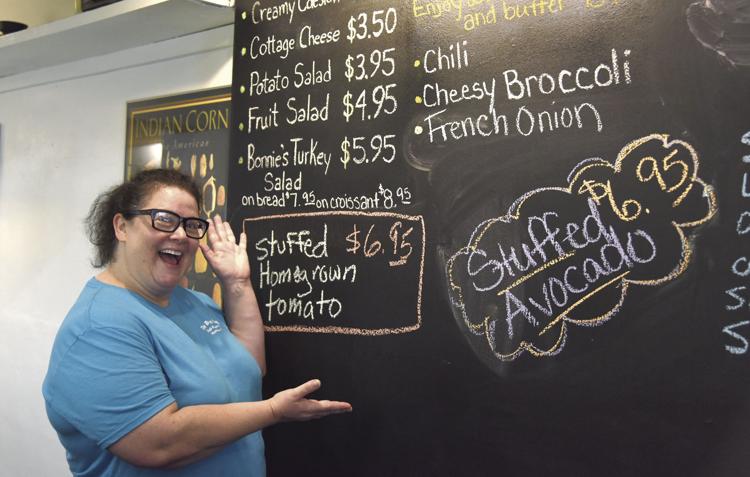 Creamy
Cottage Cheese $3.50
Potato Salad $3.95
Fruit Salad $4.95
Bonnie's Turkey $5.95
Salad
on bread $7.95 on croissant $8.95
stuffed $6.95
Homegrown
tomato
Enjoy
and butter
Chili
Cheesy Broccoli
French Onion
$6.95
Stuffed
Avocado
INDIAN CORN
American